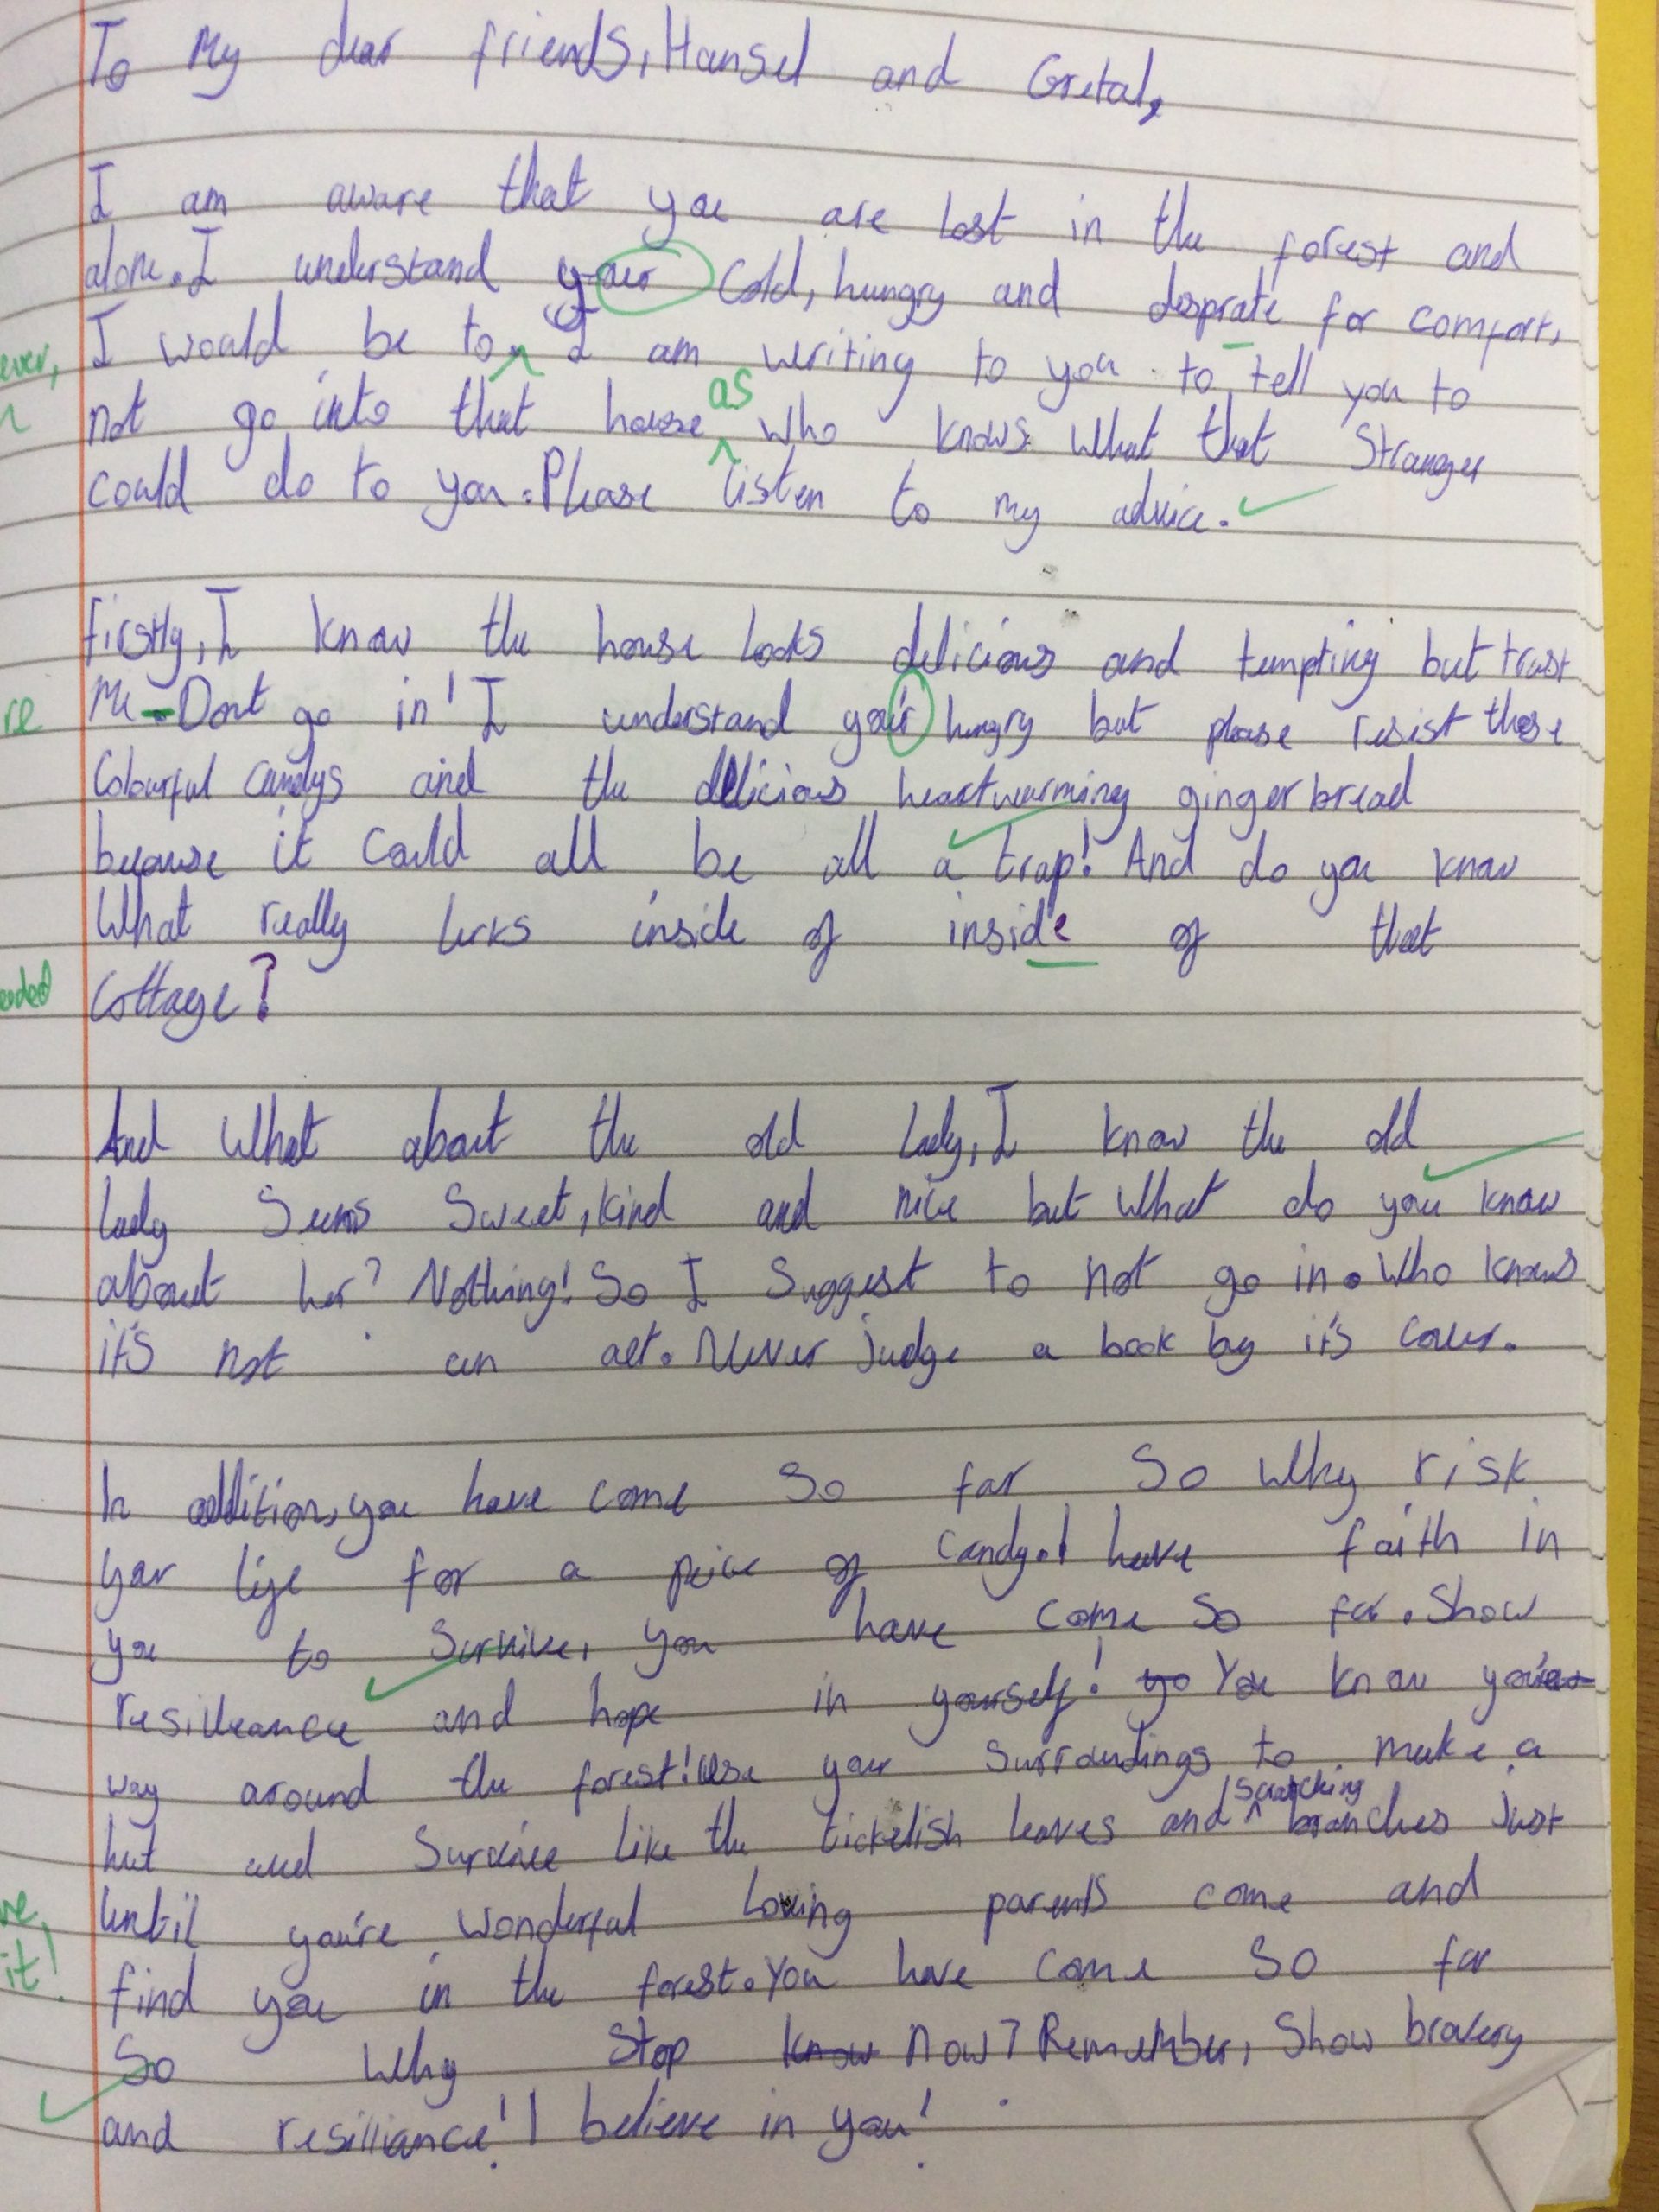 To My dear friends, Hansel and Gretal,
I am aware that you are lost in the forest and
alone. I understand your cold, hungry and desprate for comfort,
ever, I would be to. I am writing to you to tell you to
not go into that house as who knows what that Stranger
could do to you. Please listen to my advice.
firstly, I know the house looks delicious and tempting but trust
re Me - Dont go in! I understand your hungry but please resist those
Colourful candys and the delicious heartwarming gingerbread
because it could all be all a trap! And do you know
What really lurks inside of inside of that
eeded cottage?
And What about the old lady, I know the old
lady Seems Sweet, kind and nice but What do you know
about her? Nothing! So I Suggest to not go in. Who knows
it's not an act. Never judge a book by it's cover.
In addition, you have come so far So Why risk
your life for a peice of candy. I have faith in
you to Survive, you have come so far. Show
resilleance and hope in yourself! yo You know your
way around the forest! Use your surroundings to make a
hut and Survive like the tickelish leaves and scratching branches just
until you're wonderful Loving parents come and
it! find you in the forest. You have come so far
So Why Stop know now? Remember, Show bravery
and resilliance! I believe in you!